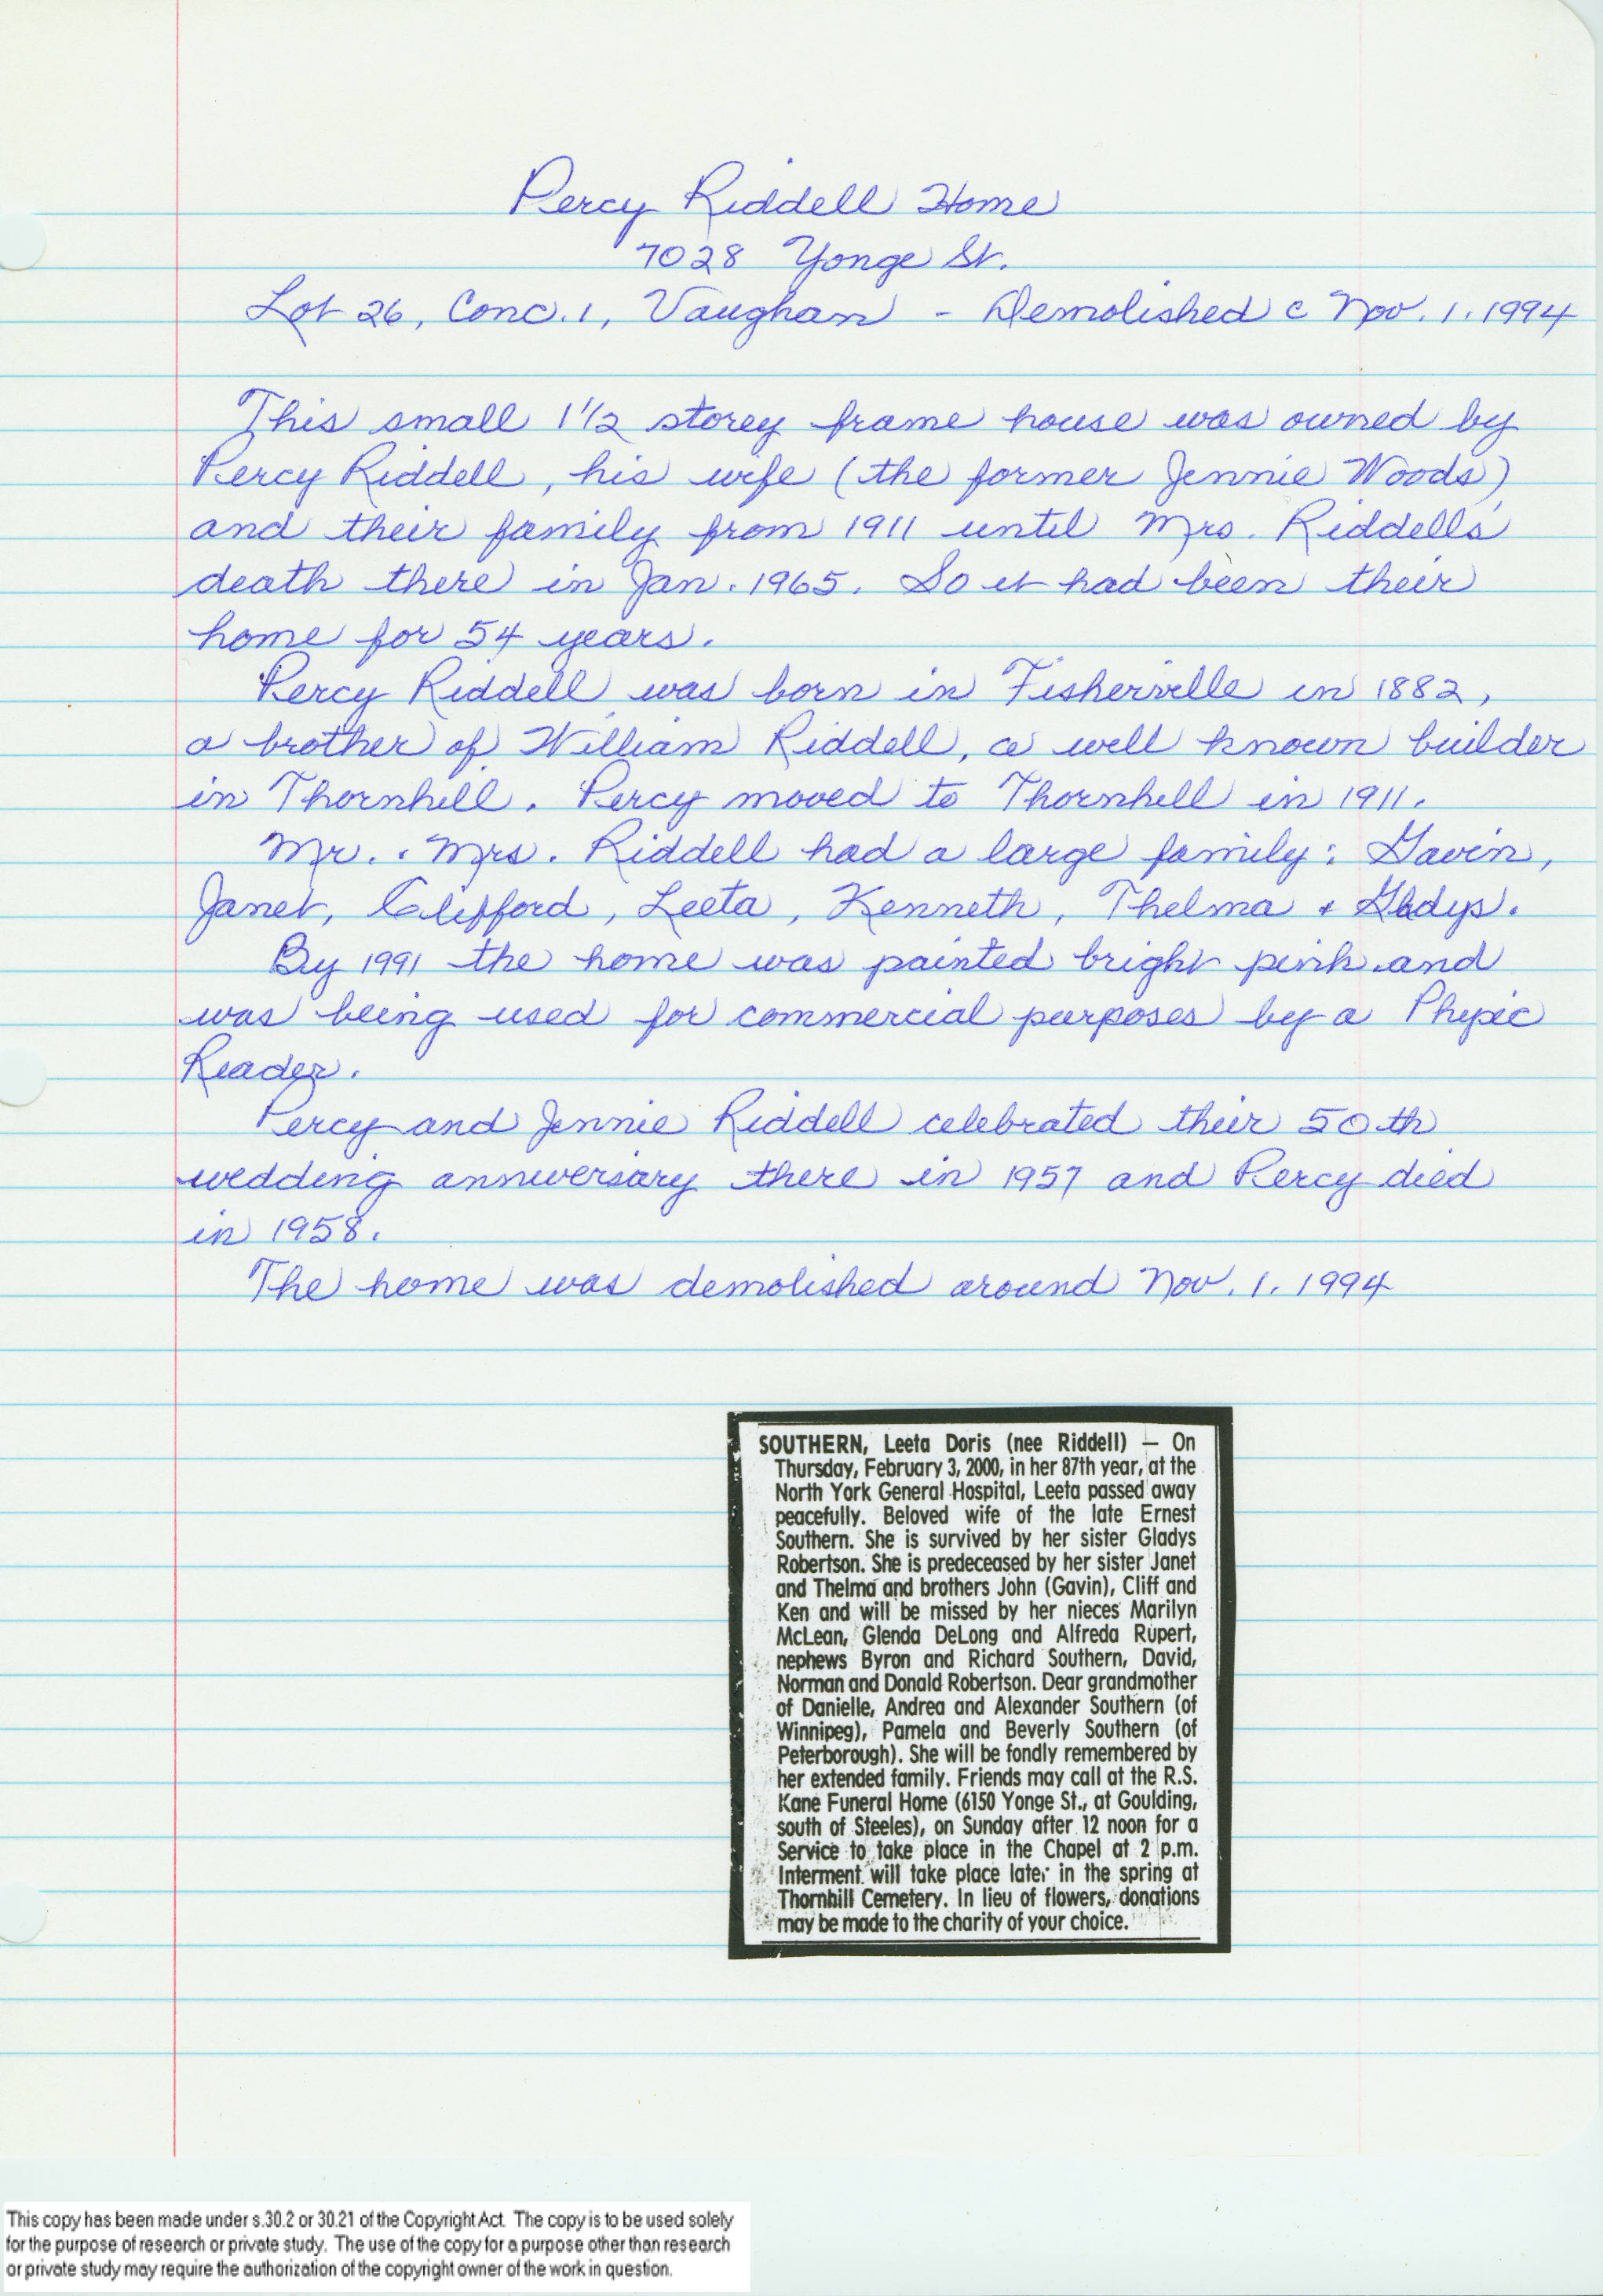 Percy Riddell Home
7028 Yonge St.
Lot 26, Conc. 1, Vaughan - Demolished c Nov. 1. 1994
This small 1 1/2 storey frame house was owned by
Percy Riddell, his wife (the former Jennie Woods)
and their family from 1911 until Mrs. Riddell's
death there in Jan. 1965. So it had been their
home for 54 years.
Percy Riddell was born in Fisherville in 1882,
a brother of William Riddell, a well known builder
in Thornhill. Percy moved to Thornhill in 1911.
Mr. & Mrs. Riddell had a large family: Gavin,
Janet, Clifford, Leeta, Kenneth, Thelma & Gladys.
By 1991 the home was painted bright pink and
was being used for commercial purposes by a Phyic
Reader.
Percy and Jennie Riddell celebrated their 50th
wedding anniversary there in 1957 and Percy died
in 1958.
The home was demolished around Nov. 1. 1994
SOUTHERN, Leeta Doris (nee Riddell) — On
Thursday, February 3, 2000, in her 87th year, at the
North York General Hospital, Leeta passed away
peacefully. Beloved wife of the late Ernest
Southern. She is survived by her sister Gladys
Robertson. She is predeceased by her sister Janet
and Thelma and brothers John (Gavin), Cliff and
Ken and will be missed by her nieces Marilyn
McLean, Glenda DeLong and Alfreda Rupert,
nephews Byron and Richard Southern, David,
Norman and Donald Robertson. Dear grandmother
of Danielle, Andrea and Alexander Southern (of
Winnipeg), Pamela and Beverly Southern (of
Peterborough). She will be fondly remembered by
her extended family. Friends may call at the R.S.
Kane Funeral Home (6150 Yonge St., at Goulding,
south of Steeles), on Sunday after 12 noon for a
Service to take place in the Chapel at 2 p.m.
Interment will take place later in the spring at
Thornhill Cemetery. In lieu of flowers, donations
may be made to the charity of your choice.
This copy has been made under s.30.2 or 30.21 of the Copyright Act. The copy is to be used solely
for the purpose of research or private study. The use of the copy for a purpose other than research
or private study may require the authorization of the copyright owner of the work in question.